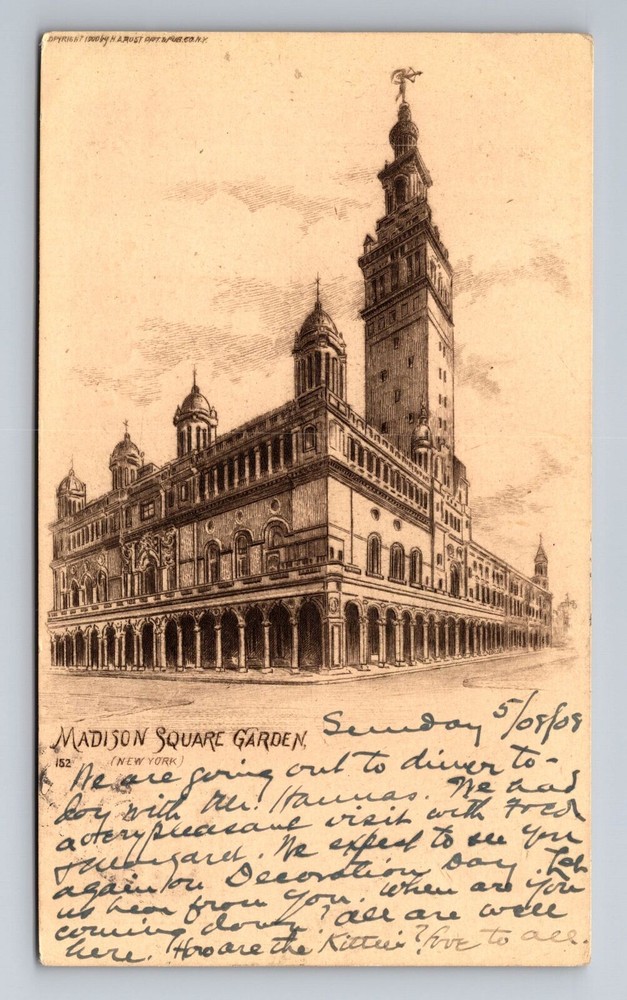 COPYRIGHT 1900 by H.A.ROST PRT. & PUB.CO.N.Y.
MADISON SQUARE GARDEN,
(NEW YORK)
152
Sunday 5/08/08
We are going out to dinner to-
day with Mr. Hannas. We had
a very pleasant visit with Fred
& Margaret. We expect to see you
again on Decoration Day. Let
us hear from you. When are you
coming down? All are well
here. How are the Kitties? Love to all.